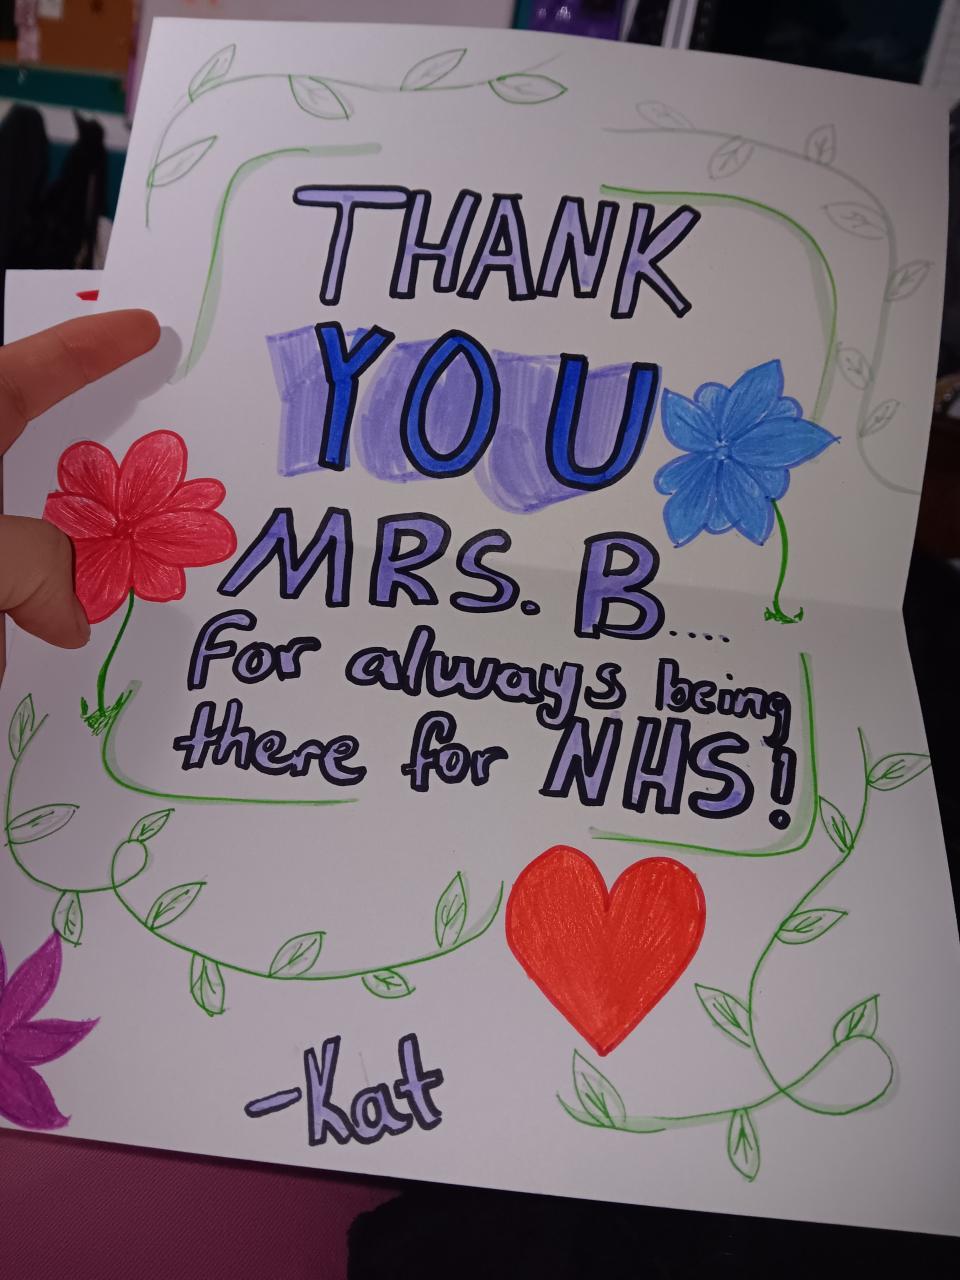 THANK
YOU
MRS. B....
For always being
there for NHS!
-Kat